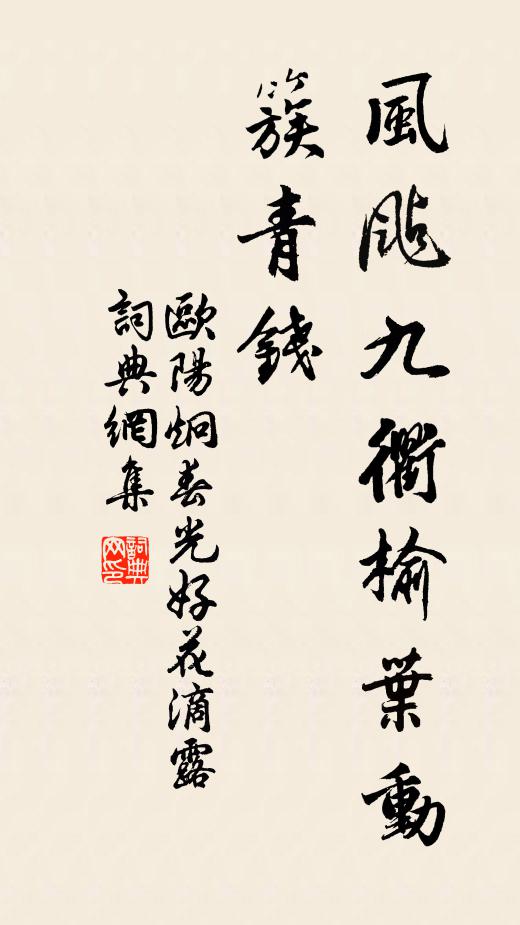 風颭九衢榆葉動
簇青錢
歐陽炯春光好花滴露
詞典網集
詞典网印